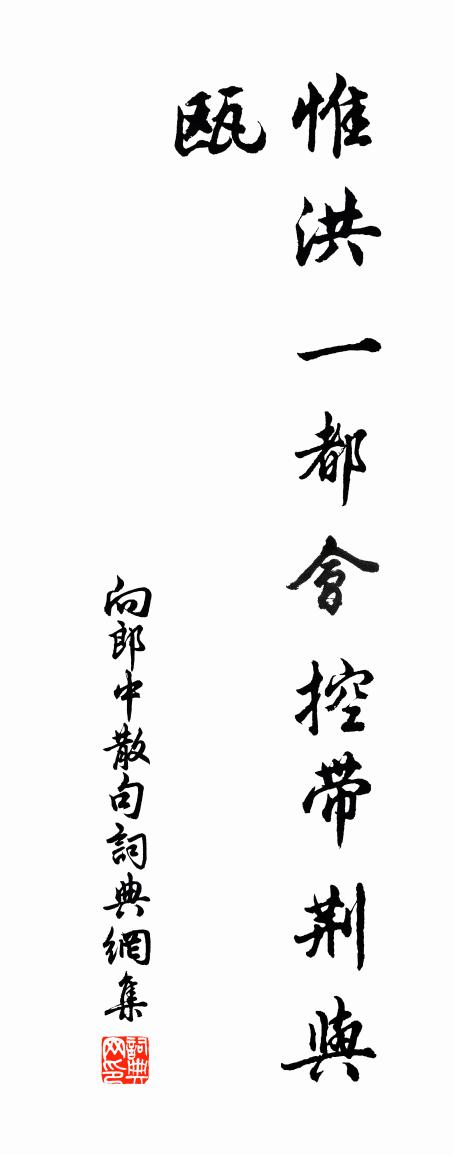 惟洪一都會控帶荆與
甌
向郎中散句詞典網集
詞典网印